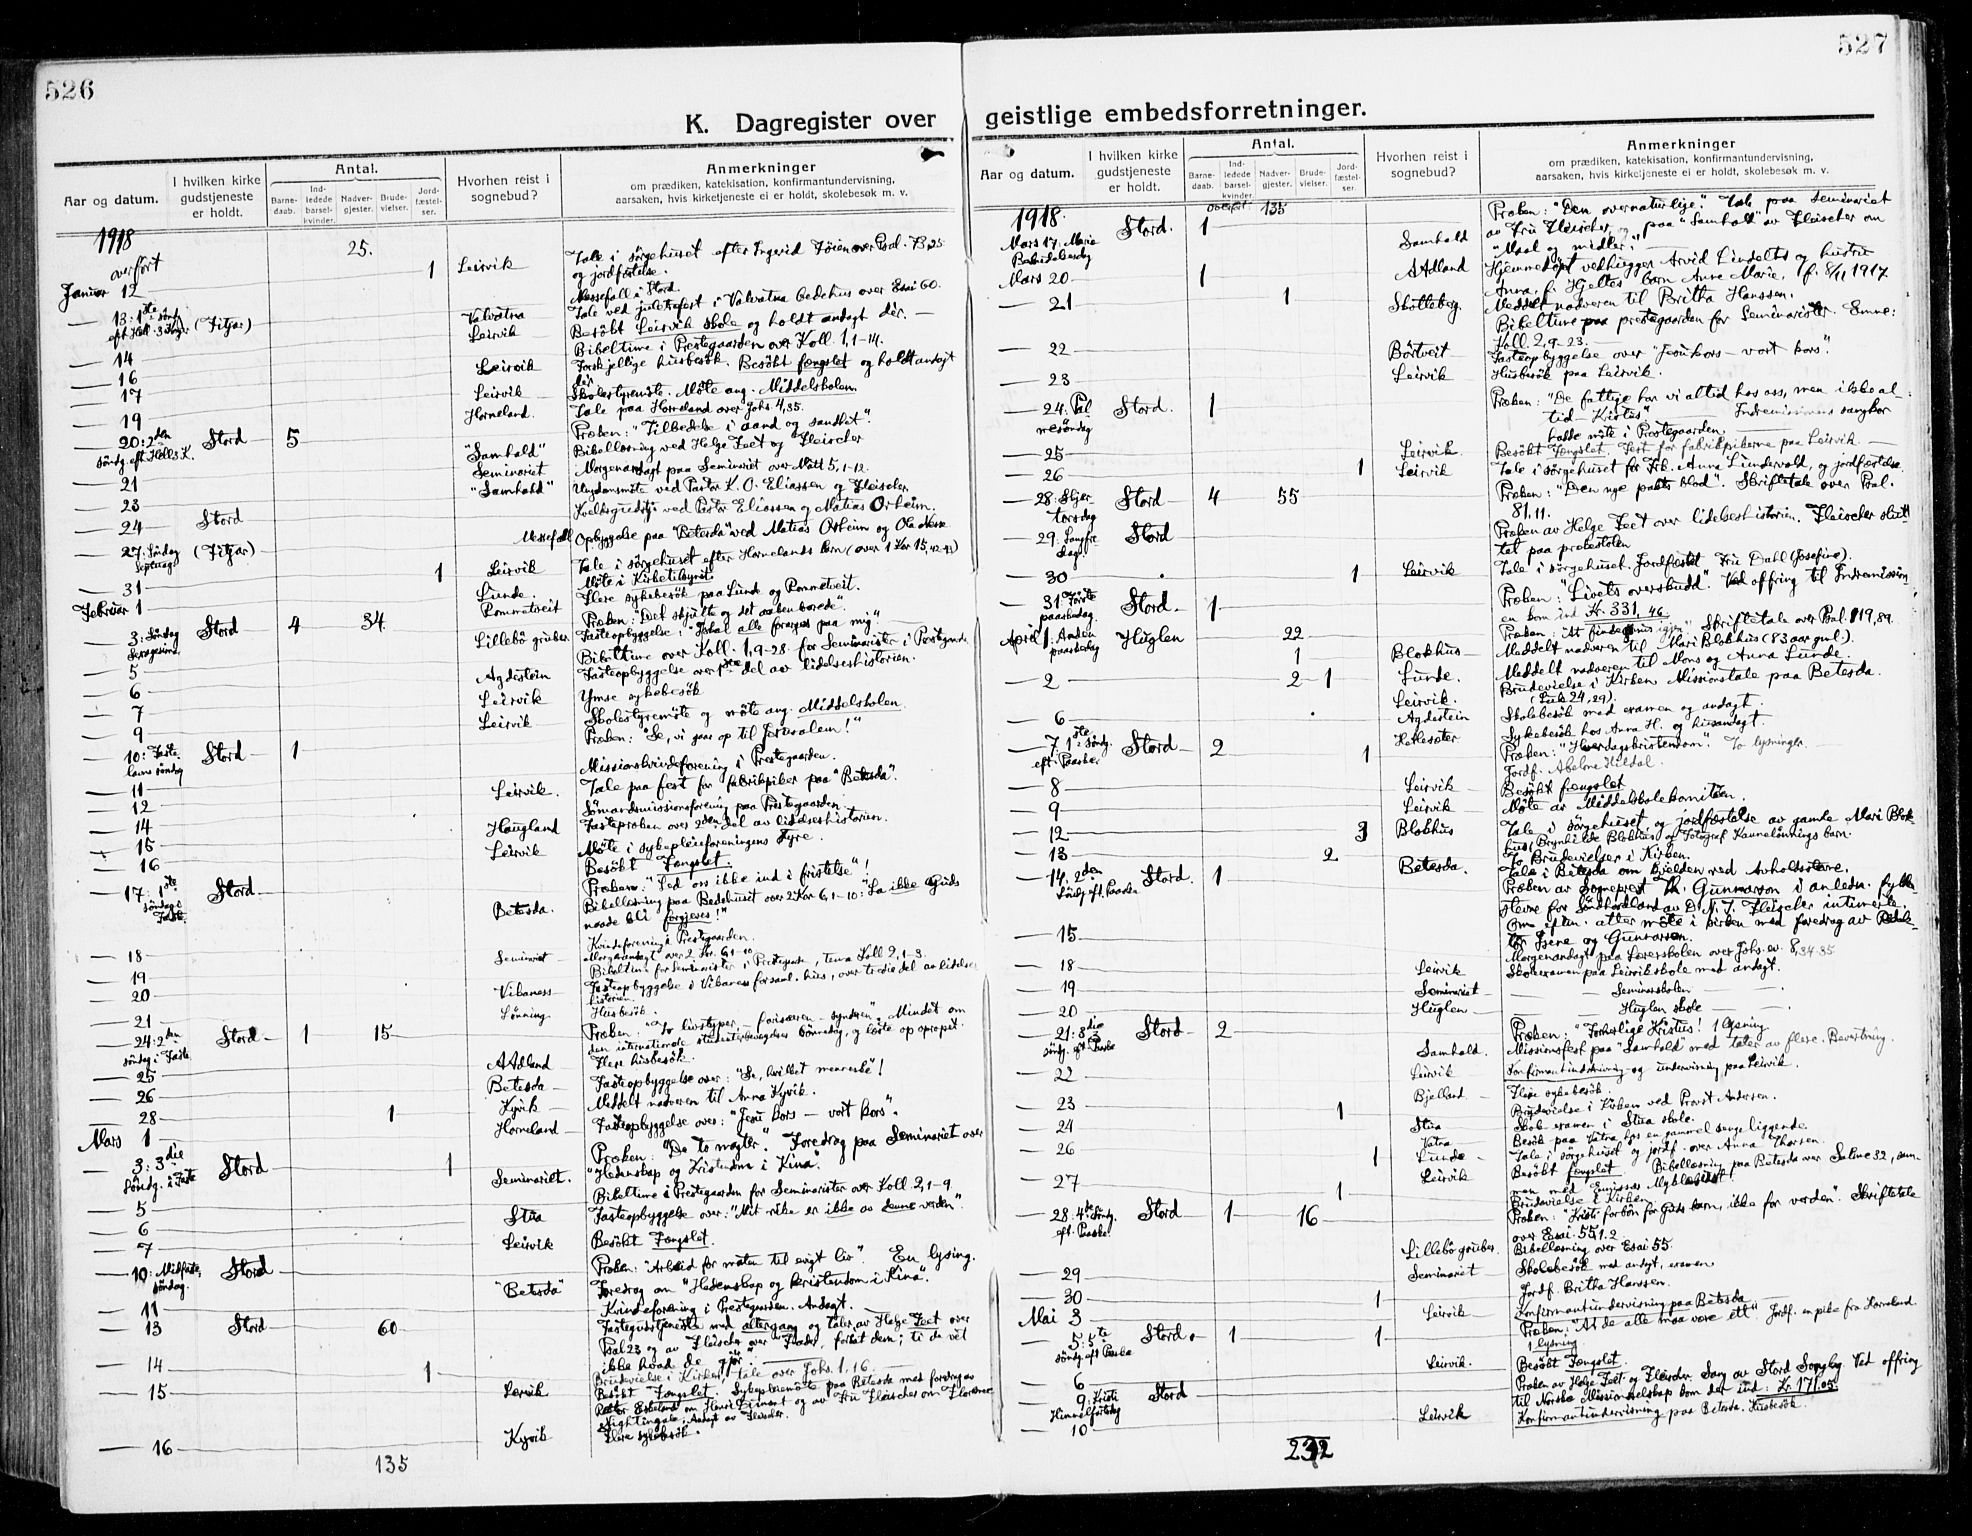 526
527
K. Dagregister over geistlige embedsforretninger.
Aar og datum.
I hvilken kirke gudstjeneste er holdt.
Antal.
Barnedaab.
Indledede barselkvinder
Nadvergjester.
Brudevielser.
Jordfæstelser.
Hvorhen reist i sognebud?
Anmerkninger
om prædiken, katekisation, konfirmantundervisning,
aarsaken, hvis kirketjeneste ei er holdt, skolebesøk m. v.
1918
overført 25.
Januar 12 1 Leirvik Tale i sørgehuset efter Ingerid
og jordfæstelse.
Messefall i Stord.
13: 1ste sønd. eft. Hell. 3 Kgr. (Fitjar) Valvatna Tale ved juletrefest i Valvatna bedehus over Esai 60.
14 Leirvik Besøkt Leirvik skole og holdt andagt der.
16 Bibeltime i Prestegaarden over Koll. 1,1-14.
17 Leirvik Forskjellige husbesøk. Besøkt fængslet og holdt andagt
der
19 Leirvik Skolestyremøte. Møte ang. Middelskolen.
Horneland. Tale paa Horneland over Johs. 4,35.
20: 2den søndg. eft. Hell 3 K. Stord 5 Præken: "Tilbedelse i aand og sandhet".
"Samhald" Bibellæsning ved Helge Feet og Fleischer
21 Seminariet Morgenandagt paa Seminariet over Matt 5,1-12.
23 "Samhald" Ungdomsmøte ved Pastor K. O. Eliassen og Fleischer
24 Stord Kveldsgudstj. ved Pastor Eliassen og Matias Orheim.
27: Søndag Septuag. (Fitjar) Messefall Opbyggelse paa "Betesda" ved Matias Orheim og Ola
31 1 Leirvik Tale i sørgehuset efter Hornelands barn (over 1 Kor 15,42-43)
Møte i Kirketilsynet.
Februar 1 Lunde. Flere sykebesøk paa Lunde og Rommetveit.
Rommetveit
3: Søndag Sexagesima Stord 4 34 Præken: "Det skjulte og det aabenbarede".
Lillebø gruber Fasteopbyggelse: "I skal alle forarges paa mig".
5 Bibeltime over Koll. 1,9-28 for Seminarister i Prestegaarden
6 Agdestein Fasteopbyggelse over 1ste del av lidelseshistorien.
7 Leirvik Ymse sykebesøk
9 Leirvik Skolestyremøte og møte ang. Middelskolen
10: Fastelavns søndag Stord 1 Præken: "Se, vi gaar op til Jerusalem!"
11 Missionskvindeforening i Prestegaarden.
12 Leirvik. Tale paa fest for fabrikpiker paa "Betesda".
14 Sømandsmissionsforening paa Prestegaarden
15 Haugland Fastepræken over 2den del av lidelseshistorien.
16 Leirvik Møte i sykepleieforeningens styre.
Besøkt Fængslet.
17: 1ste søndag i Faste Stord Præken: "Led oss ikke ind i fristelse"!
Betesda. Bibellæsning paa Bedehuset over 2 Kor 6,1-10: "La ikke Guds
naade bli forgjeves!"
18 Kvindeforening i Prestegaarden.
19 Seminariet Morgenandagt over 2 Kor. 6,1-10
20 Bibeltime for Seminarister i Prestegaarden, tema Koll 2,1-3.
Vikaness Fasteopbyggelse i Vikaness forsaml. hus, over tredie del av lidelses
historien.
21 Lønning Husbesøk.
24: 2den søndag i Faste Stord 1 15 Præken: "To livstyper, — farisæeren — synderen". Mindet om
den internationale studenterbevægelses bønnedag, og læste op oproret.
25 Aadland Flere husbesøk.
26 Betesda Fasteopbyggelse over: "Se, hvilket menneske"!
28 1 Kyvik Meddelt nadveren til Anna Kyvik.
Mars 1 Horneland Fasteopbyggelse over: "Jesu kors — vort kors".
3: 3die søndg. i Faste Stord 1 Præken: "De to magter". Foredrag paa Seminariet over
Seminariet. "Hedenskap og Kristendom i Kina".
5 Bibeltime i Prestegaarden for Seminarister over Koll. 2,1-9.
6 Stua Fasteopbyggelse over: "Mit rike er ikke av denne verden".
7 Leirvik Besøkt Fængslet.
10: Midfaste søndag Stord Præken: "Arbeid for maten til evigt liv". En lysing.
"Betesda" Foredrag om "Hedenskap og kristendom i Kina".
11 Kvindeforening i Prestegaarden. Andagt.
13 Stord 60 Fastegudstjeneste med altergang og taler av Helge Feet over
Psal 23 og av Fleischer over "Fader, forlat dem; ti de vet
ikke hvad de gjør".
14 1 Brudevielse i Kirken, tale over Johs. 1,16.
15 Leirvik Besøkt Fængslet. Sykepleiemøte paa Betesda med foredrag av
om Henri Dunant og av Fru Fleischer om Florence
Nightingale. Andagt av Fleischer.
16 Kyvik Flere sykebesøk.
135
Aar og datum.
I hvilken kirke gudstjeneste er holdt.
Antal.
Barnedaab.
Indledede barselkvinder
Nadvergjester.
Brudevielser.
Jordfæstelser.
Hvorhen reist i sognebud?
Anmerkninger
om prædiken, katekisation, konfirmantundervisning,
aarsaken, hvis kirketjeneste ei er holdt, skolebesøk m. v.
1918. overført: 135
Mars 17: Mariæ Bebudelsesdg Stord. 1 Præken: "Den overnaturlige". Tale paa Seminariet
Samhald av Fru Fleischer, og paa "Samhald" av Fleischer om
"Maal og midler".
Mars 20 1 Aadland Hjemmedøpt vedhugger Arvid Lindelts og hustru
Anna, f. Hjeltes barn Anne Marie, f. 8/11 1917.
21 1 Skotteberg. Meddelt nadveren til Britha Hanssen.
Bibeltime paa prestegaarden for Seminarister. Emne:
Koll. 2,9-23.
22 Børtveit Fasteopbyggelse over "Jesu kors — vort kors".
23 Leirvik Husbesøk paa Leirvik.
24: Palmesøndag Stord. 1 Præken: "De fattige har vi altid hos oss, men ikke al-
tid Kristus" Indremissionens sangkor
hadde møte i Prestegaarden.
25 Leirvik Besøkt Fængslet. Fest for fabrikpikerne paa Leirvik.
26 1 Leirvik Tale i sørgehuset for Frk. Anna Lundervold, og jordfæstelse.
28: Skjærtorsdag Stord 4 55 Præken: "Den nye pakts blod". Skriftetale over Psal.
81,11.
29: Langfredag Stord Præken av Helge Feet over lidelseshistorien. Fleischer slut-
tet paa prækestolen
30 1 Leirvik Tale i sørgehuset. Jordfæstet Fru Dahl (Josefine).
31: Første paaskedag Stord. 1 Præken: "Livets overskudd". Ved offring til Indremission-
en kom ind Kr. 331,46.
April 1: Anden paaskedag Huglen 22 Præken: Skriftetale over Psal. 119,89.
1 Blokhus Meddelt nadveren til Mari Blokhus (83 aar gml.).
2 2 1 Lunde. Meddelt nadveren til Mons og Anna Lunde.
Leirvik. Brudevielse i Kirken. Missionstale paa Betesda.
(Luk 24,29).
6 Agdestein Skolebesøk med examen og andagt.
Hetlesæter Sykebesøk hos Anna H. og husandagt.
7: 1ste Søndg. eft. Paaske Stord 2 1 Præken: "Hverdagskristendom". To lysninger.
Jordf. Abelone Hildal.
8 Leirvik Besøkt fængslet
9 Leirvik Møte av Middelskolekomiteen.
12 3 Blokhus Tale i sørgehuset og jordfæstelse av gamle Mari Blok-
hus, Brynhilde Blokhus og Fotograf barn.
13 2 To Brudevielser i Kirken.
14. 2den Søndg. eft. Paaske Stord. 1 Betesda. Tale i Betesda om kvelden ved Avholdsstevne.
Præken av Sogneprest Th. Gunnarson i anledn. fylkes-
stevne for Søndhordland av D. N. T. Fleischer intimerte.
Om eften. atter møte i kirken med foredrag av
Isene og Gunnarson.
15
18 Leirvik Morgenandagt paa Lærerskolen over Johs. ev. 8,34-35
19 Seminariet Skoleexamen paa Leirvikskole med andagt.
20 Huglen Seminarskolen
Huglen skole
21: 3die søndg. eft. Paaske Stord 2 Præken: "Forherlige Kristus! 1 lysning
Samhald. Missionsfest paa "Samhald" med taler av flere. Bevertning.
22 Leirvik Konfirmantindskrivning og undervisning paa Leirvik.
23 1 Bjelland Flere sykebesøk.
Brudevielse i Kirken ved Provst Andersen.
24 Stua Skole examen i Stua skole.
Vatna Besøk paa Vatna hos en gammel sengeliggende.
26 1 Lunde Tale i sørgehuset og jordf. over Anna Thorsen.
27 1 Leirvik Besøkt fængslet. Bibellæsning paa Betesda over Salme 32, sam-
men med Emissær
Brudevielse i Kirken.
28: 4de Søndg. eft. Paaske Stord 1 16 Præken: "Kristi forbøn for Guds barn, ikke for verden". Skriftetale
over Esai. 55,1.2
Lillebø gruber. Bibellæsning over Esai 55.
29 Seminariet Skolebesøk med andagt, examen
30 1 Jordf. Britha Hanssen.
Mai 3 Leirvik Konfirmantundervisning paa Betesda
5: 5te søndg. eft Paaske Stord. 1 1 Præken: "At de alle maa være ett". Jordf. en pike fra Horneland.
1 lysning.
6 Leirvik. Besøkt Fængslet.
9: Kristi Himmelfartsdag Stord Præken av Helge Feet og Fleischer. Sang av Stord Songlag. Ved offring
til Norske Missionsselskap kom der ind: Kr. 171,05.
10 Leirvik Konfirmantundervisning paa Betesda. Husbesøk.
232